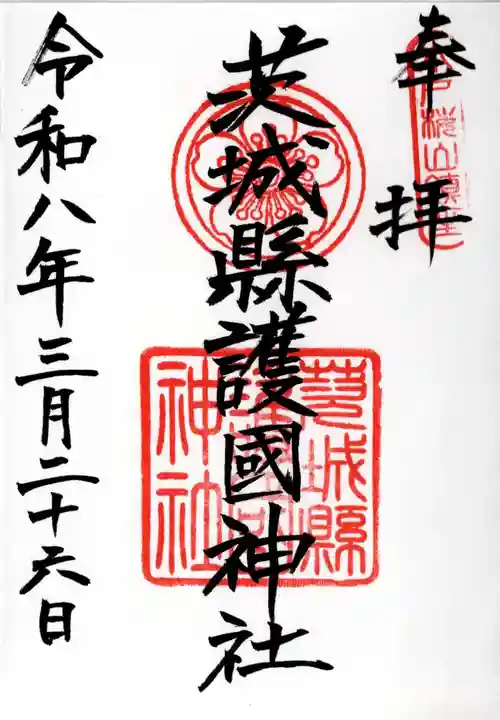 奉拝
茨城縣護國神社
茨城縣護國神社
令和八年三月二十六日